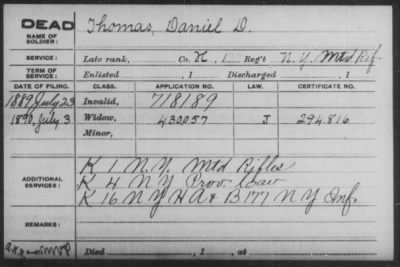 DEAD
NAME OF SOLDIER:
Thomas, Daniel D.
SERVICE: Late rank, Co. K, 1 Reg't N.Y. Mtd Rif
TERM OF SERVICE: Enlisted , 1 Discharged , 1
DATE OF FILING. CLASS. APPLICATION NO. LAW. CERTIFICATE NO.
1889, July 23 Invalid, 718189
1890, July 3 Widow, 430057 J 294816
Minor,
ADDITIONAL SERVICES:
K 1 N.Y. Mtd Rifles
K 4 N Y Prov. Cav
K 16 N Y H A & B 177 N Y Inf.
REMARKS:
Died , 1 , at